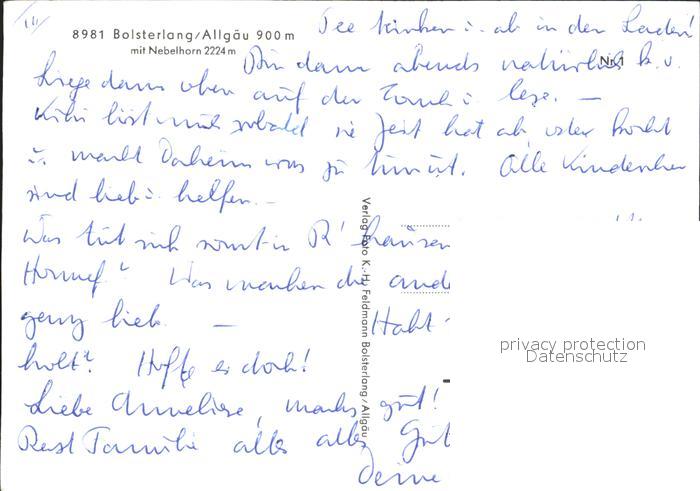 8981 Bolsterlang/Allgäu 900 m
mit Nebelhorn 2224 m
Nr. 1
Tee trinken u. ab in den Laden!
Bin dann abends natürlich k.o.
Liege dann oben auf der Couch u. lese. —
Kiki löst mich sobald sie Zeit hat ab oder kocht
u. macht Daheim was zu tun ist. Alle Kinder
sind lieb u. helfen. —
Was tut sich sonst in R'hausen
Honnef? Was machen die
ganz lieb. — Habt
holt? Hoffe es doch!
Liebe Anneliese, machs gut!
Rest Familie alles alles Gut
Deine
Verlag Foto K.-H. Feldmann Bolsterlang/Allgäu
privacy protection
Datenschutz